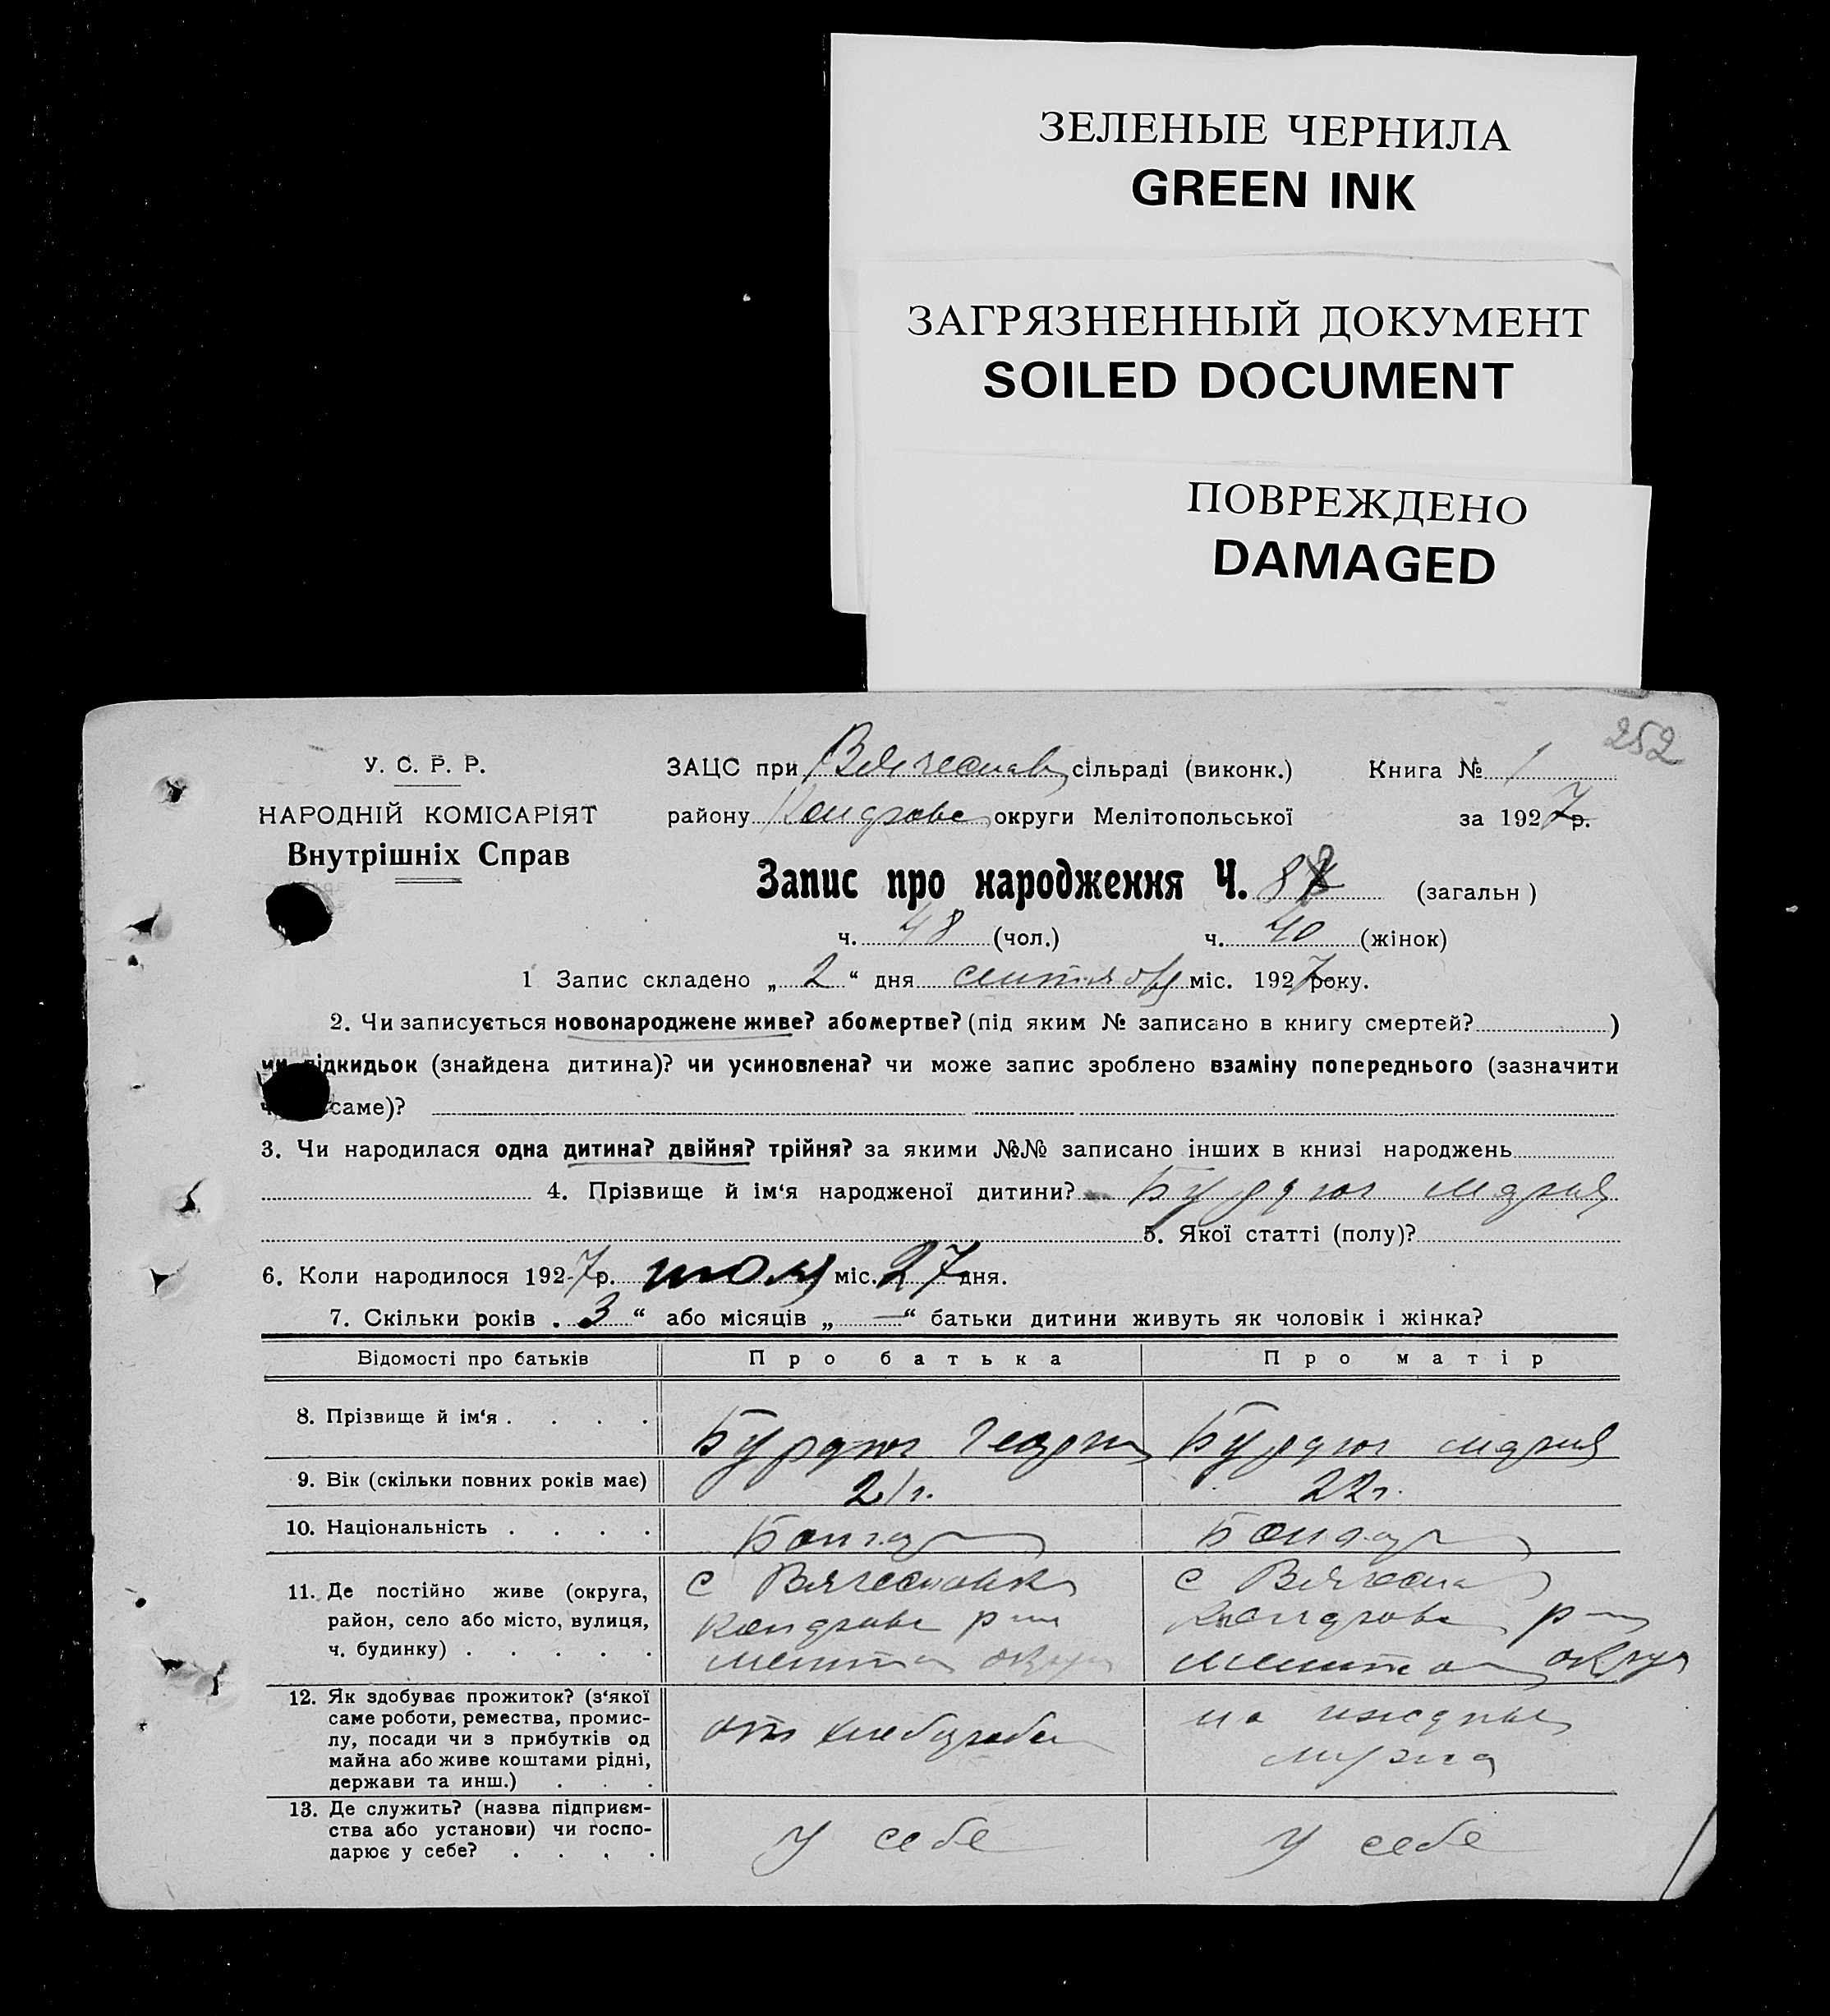 ЗЕЛЕНЫЕ ЧЕРНИЛА
GREEN INK
ЗАГРЯЗНЕННЫЙ ДОКУМЕНТ
SOILED DOCUMENT
ПОВРЕЖДЕНО
DAMAGED
252
У. С. Р. Р.
НАРОДНІЙ КОМІСАРІЯТ
Внутрішніх Справ
ЗАЦС при Вячеслав сільраді (виконк.) Книга № 1
району округи Мелітопольської за 1927р.
Запис про народження Ч. (загальн )
ч. 48 (чол.) ч. 40 (жінок)
1 Запис складено „ 2 “ дня сентября міс. 1927 року.
2. Чи записується новонароджене живе? або мертве? (під яким № записано в книгу смертей? )
підкидьок (знайдена дитина)? чи усиновлена? чи може запис зроблено взаміну попереднього (зазначити
саме)?
3. Чи народилася одна дитина? двійня? трійня? за якими №№ записано інших в книзі народжень
4. Прізвище й ім‘я народженої дитини? Мария
5. Якої статті (полу)?
6. Коли народилося 1927р. міс. 27 дня.
7. Скільки років „ 3 “ або місяців „ — “ батьки дитини живуть як чоловік і жінка?
Відомості про батьків Про батька Про матір
8. Прізвище й ім‘я . . . . Мария
9. Вік (скільки повних років має) 21 г. 22 г.
10. Національність . . . . Болгар Болгар
11. Де постійно живе (округа, район, село або місто, вулиця, ч. будинку) . . . . . с Вячеславка р-на округ с Вячесла р-на округ
12. Як здобуває прожиток? (з‘якої саме роботи, ремества, промислу, посади чи з прибутків од майна або живе коштами рідні, держави та инш.) . . . от хлебороб на мужа
13. Де служить? (назва підприємства або установи) чи господарює у себе? . . . . У себе У себе